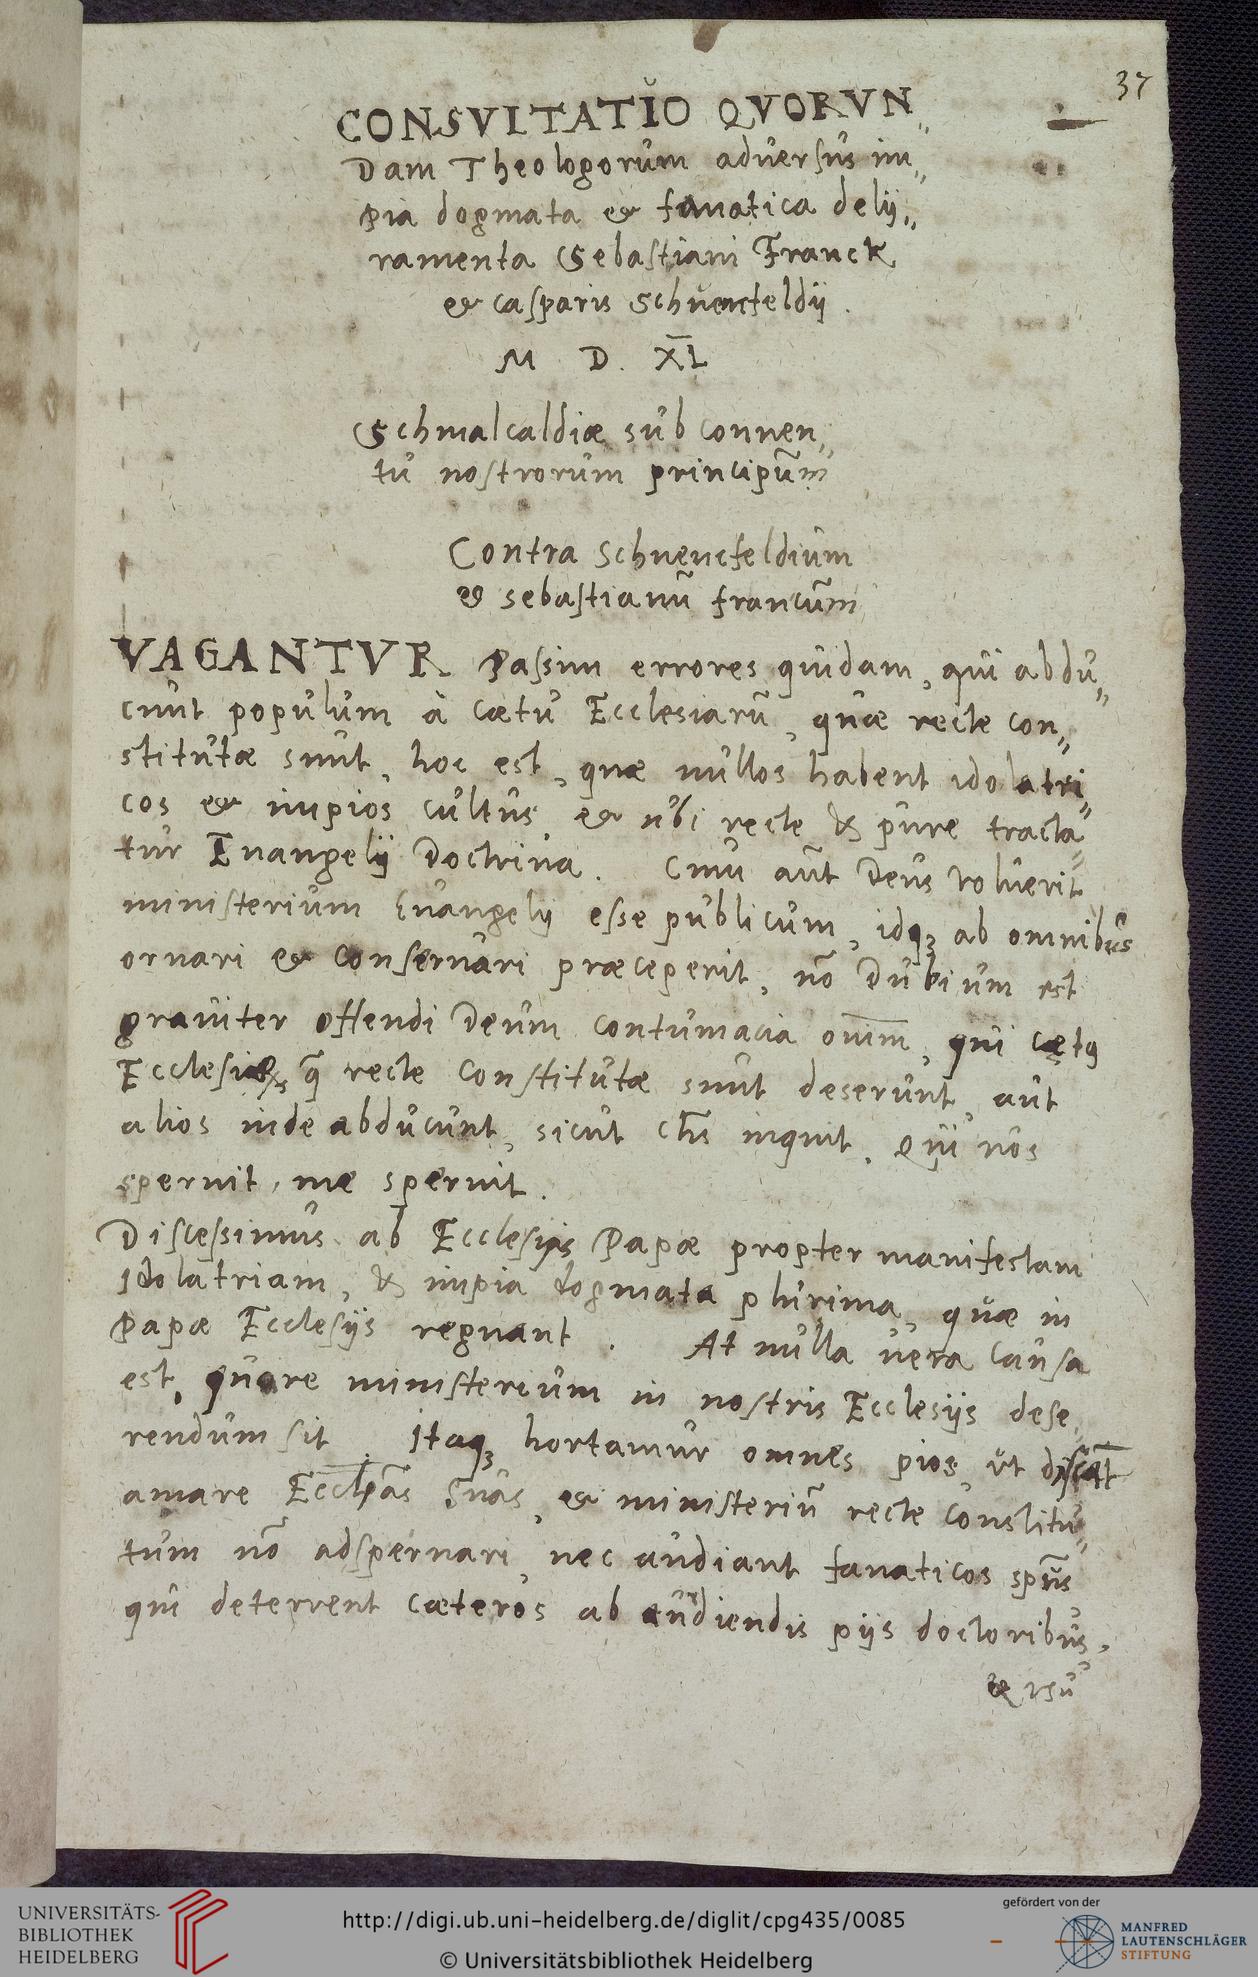 37
CONSVLTATIO QVORVN„
Dam Theologorum aduersus im„
pia dogmata et fanatica delij„
ramenta Sebastiani Franck
et casparis Schuencfeldij.
M D. XL
Schmalcaldiæ sub conuen„
tu nostrorum principūm
Contra Schuencfeldium
et sebastianū francūm
VAGANTVR Passim errores quidam, qui abdu„
cunt populum à cœtu Ecclesiarū, quæ recte con„
stitutæ sunt, hoc est, quæ nullos habent idolatri„
cos et impios cultus, et ubi recte & pure tracta„
tur Euangelij Doctrina. Cum aūt Deus voluerit
ministerium Euangelij esse publicum, idq₃ ab omnibus
ornari et conseruari præceperit, nō Dubium est
grauiter offendi Deum contumacia omīm, qui cœtꝯ
Ecclesiaꝝ, q̄ recte constitutæ sunt deserunt, aut
alios inde abducunt, sicut Chs̄ inquit. Qui uos
spernit, me spernit.
Discessimus ab Ecclesijs Papæ propter manifestam
Idolatriam, & impia dogmata plurima, quæ in
Papæ Ecclesijs regnant. At nulla uera causa
est, quare ministerium in nostris Ecclesijs dese„
rendum sit. Itaq₃ hortamur omnes pios, ut discāt
amare Eccl̄ias suas, et ministeriū recte constitu„
tum nō adspernari, nec audiant fanaticos spūs
qui deterrent cæteros ab audiendis pijs doctoribus,
et vsu
UNIVERSITÄTS-
BIBLIOTHEK
HEIDELBERG
http://digi.ub.uni-heidelberg.de/diglit/cpg435/0085
© Universitätsbibliothek Heidelberg
gefördert von der
MANFRED
LAUTENSCHLÄGER
STIFTUNG